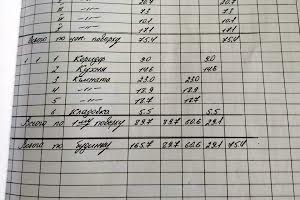 " -"- 20.7 20.7
" -"- 7.3 7.3
" -"- 10.1 10.1
" -"- 17.1 17.1
Всього по цок. поверху 75.4 75.4
1 1 1 Коридор 9.0 9.0
2 Кухня 14.6 14.6
3 Кімната 23.0 23.0
4 -"- 18.9 18.9
5 -"- 18.7 18.7
6 Кладовка 5.5 5.5
Всього по 1 поверху 89.7 89.7 60.6 29.1
Всього по будинку 165.7 89.7 60.6 29.1 75.4